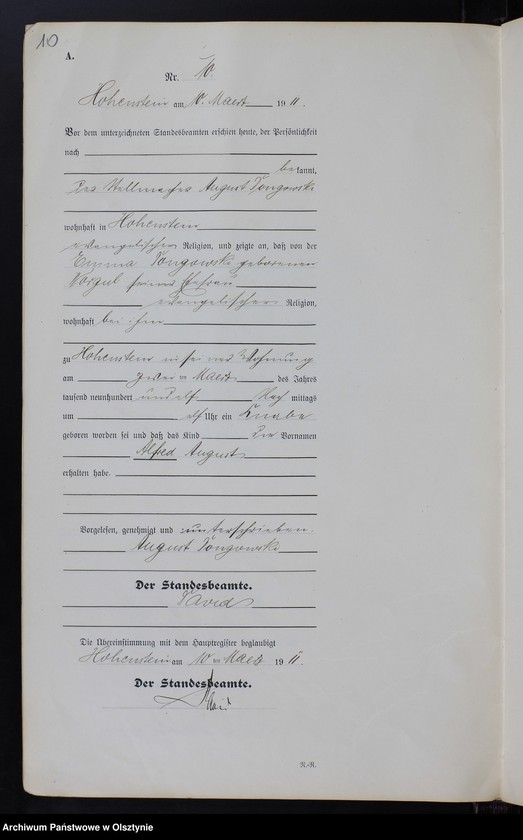 10
A.
Nr. 10.
Hohenstein am 10. Maerz 1911.
Vor dem unterzeichneten Standesbeamten erschien heute, der Persönlichkeit
nach
bekannt,
Der Stellmacher August Tongowski
wohnhaft in Hohenstein
evangelischer Religion, und zeigte an, daß von der
Emma Tongowski geborenen
seiner Ehefrau
evangelischer Religion,
wohnhaft bei ihm
zu Hohenstein in seiner Wohnung
am zweiten Maerz des Jahres
tausend neunhundert und elf Nach mittags
um elf Uhr ein Knabe
geboren worden sei und daß das Kind die Vornamen
Alfred August
erhalten habe.
Vorgelesen, genehmigt und unterschrieben.
August Tongowski
Der Standesbeamte.
David
Die Übereinstimmung mit dem Hauptregister beglaubigt
Hohenstein am 10 ten Maerz 1911.
Der Standesbeamte.
R.-R.
Archiwum Państwowe w Olsztynie